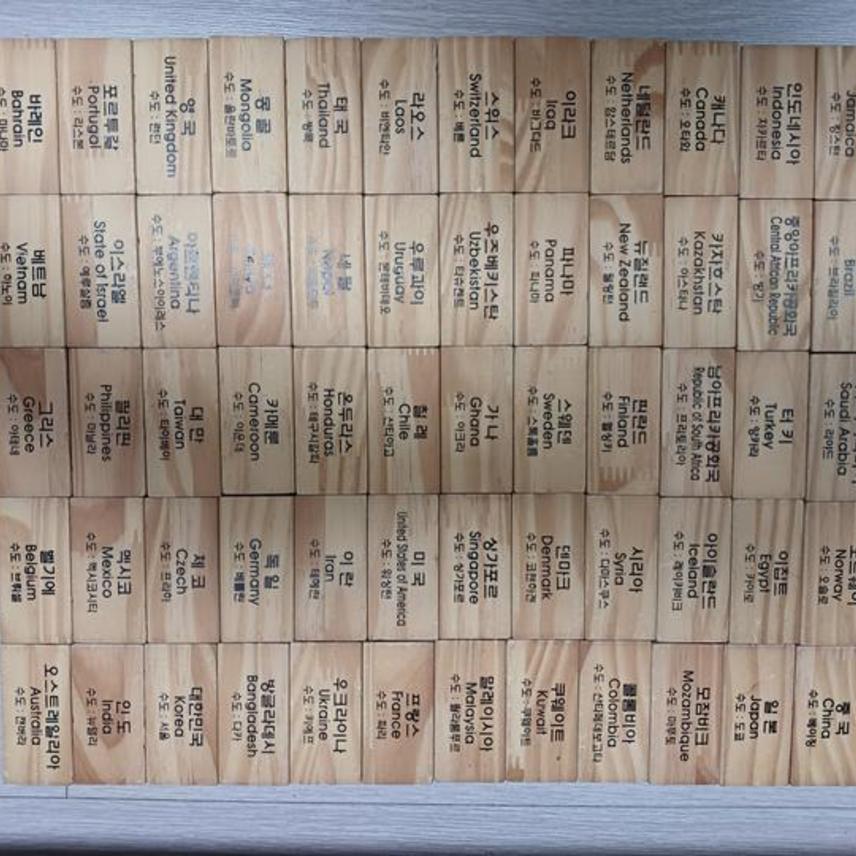 Jamaica
수도 : 킹스턴
Brazil
수도 : 브라질리아
Saudi Arabia
수도 : 리야드
Norway
수도 : 오슬로
중 국
China
수도 : 베이징
인도네시아
Indonesia
수도 : 자카르타
중앙아프리카공화국
Central African Republic
수도 : 방기
터 키
Turkey
수도 : 앙카라
이집트
Egypt
수도 : 카이로
일 본
Japan
수도 : 도쿄
캐나다
Canada
수도 : 오타와
카자흐스탄
Kazakhstan
수도 : 아스타나
남아프리카공화국
Republic of South Africa
수도 : 프리토리아
아이슬란드
Iceland
수도 : 레이캬비크
모잠비크
Mozambique
수도 : 마푸토
네덜란드
Netherlands
수도 : 암스테르담
뉴질랜드
New Zealand
수도 : 웰링턴
핀란드
Finland
수도 : 헬싱키
시리아
Syria
수도 : 다마스쿠스
콜롬비아
Colombia
수도 : 산타페데보고타
이라크
Iraq
수도 : 바그다드
파나마
Panama
수도 : 파나마
스웨덴
Sweden
수도 : 스톡홀름
덴마크
Denmark
수도 : 코펜하겐
쿠웨이트
Kuwait
수도 : 쿠웨이트
스위스
Switzerland
수도 : 베른
우즈베키스탄
Uzbekistan
수도 : 타슈켄트
가 나
Ghana
수도 : 아크라
싱가포르
Singapore
수도 : 싱가포르
말레이시아
Malaysia
수도 : 쿠알라룸푸르
라오스
Laos
수도 : 비엔티안
우루과이
Uruguay
수도 : 몬테비데오
칠 레
Chile
수도 : 산티아고
미 국
United States of America
수도 : 워싱턴
프랑스
France
수도 : 파리
태 국
Thailand
수도 : 방콕
네 팔
Nepal
온두라스
Honduras
수도 : 테구시갈파
이 란
Iran
수도 : 테헤란
우크라이나
Ukraine
수도 : 키예프
몽 골
Mongolia
수도 : 울란바토르
카메룬
Cameroon
수도 : 야운데
독 일
Germany
수도 : 베를린
방글라데시
Bangladesh
수도 : 다카
영 국
United Kingdom
수도 : 런던
아르헨티나
Argentina
수도 : 부에노스아이레스
대 만
Taiwan
수도 : 타이베이
체 코
Czech
수도 : 프라하
대한민국
Korea
수도 : 서울
포르투갈
Portugal
수도 : 리스본
이스라엘
State of Israel
수도 : 예루살렘
필리핀
Philippines
수도 : 마닐라
멕시코
Mexico
수도 : 멕시코시티
인 도
India
수도 : 뉴델리
바레인
Bahrain
수도 : 마나마
베트남
Vietnam
수도 : 하노이
그리스
Greece
수도 : 아테네
벨기에
Belgium
수도 : 브뤼셀
오스트레일리아
Australia
수도 : 캔버라